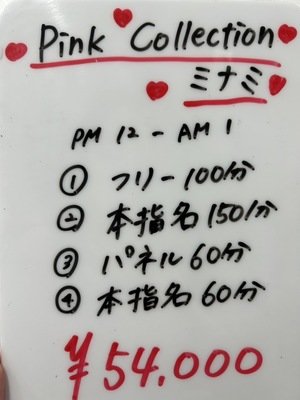 Pink Collection
ミナミ
PM 12 - AM 1
① フリー 100分
② 本指名 150分
③ パネル 60分
④ 本指名 60分
¥54.000